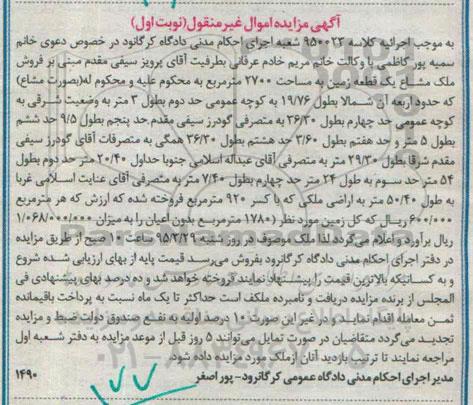 آگهی مزایده اموال غیر منقول (نوبت اول)
به موجب اجرائیه کلاسه ۹۵۰۰۲۳ شعبه اجرای احکام مدنی دادگاه کرگانرود در خصوص دعوی خانم
سمیه پور کاظمی با وکالت خانم مریم خادم عرفانی بطرفیت آقای پرویز سیفی مقدم مبنی بر فروش
ملک مشاع یک قطعه زمین به مساحت ۲۷۰۰ مترمربع به محکوم علیه و محکوم له (بصورت مشاع)
که حدود اربعه آن شمالا بطول ۱۹/۷۶ به کوچه عمومی حد دوم بطول ۳ متر به وضعیت شرقی به
کوچه عمومی حد چهارم بطول ۲۶/۳۰ به متصرفی گودرز سیفی مقدم حد پنجم بطول ۹/۵ حد ششم
بطول ۵ متر و حد هفتم بطول ۳/۶۰ حد هشتم بطول ۳۶/۳۰ همگی به متصرفات آقای گودرز سیفی
مقدم شرقا بطول ۲۹/۳۰ متر به متصرفی آقای عبداله اسلامی جنوبا حداول ۲۰/۴۰ متر حد دوم بطول
۵۴ متر حد سوم به طول ۲۴ متر حد چهارم بطول ۷/۴۰ متر به متصرفی آقای عنایت اسلامی غربا
به طول ۵۰/۴۰ متر به اراضی ملکی که با کسر ۹۲۰ مترمربع فروخته شده که ارزش که هر مترمربع
۶۰۰/۰۰۰ ریال که کل زمین مورد نظر (۱۷۸۰ مترمربع بدون اعیان را به میزان ۱/۰۶۸/۰۰۰/۰۰۰
ریال برآورد و اعلام می‌گردد لذا ملک موصوف در روز شنبه ۹۵/۳/۲۹ ساعت ۱۰ صبح از طریق مزایده
در دفتر اجرای احکام مدنی دادگاه کرگانرود بفروش می‌رسد قیمت پایه از بهای ارزیابی شده شروع
و به کسانیکه بالاترین قیمت را پیشنهاد نمایند فروخته خواهد شد و ده درصد بهای پیشنهادی فی
المجلس از برنده مزایده دریافت و نامبرده مکلف است حداکثر تا یک ماه نسبت به پرداخت باقیمانده
ثمن معامله اقدام نماید و در غیر این صورت ۱۰ درصد اولیه به نفع صندوق دولت ضبط و مزایده
تجدید می‌گردد متقاضیان در صورت تمایل می‌توانند ۵ روز قبل از موعد مزایده به دفتر شعبه اول
مراجعه نمایند تا ترتیب بازدید آنان از ملک مورد مزایده داده شود.
مدیر اجرای احکام مدنی دادگاه عمومی کرگانرود - پور اصغر ۱۴۹۰